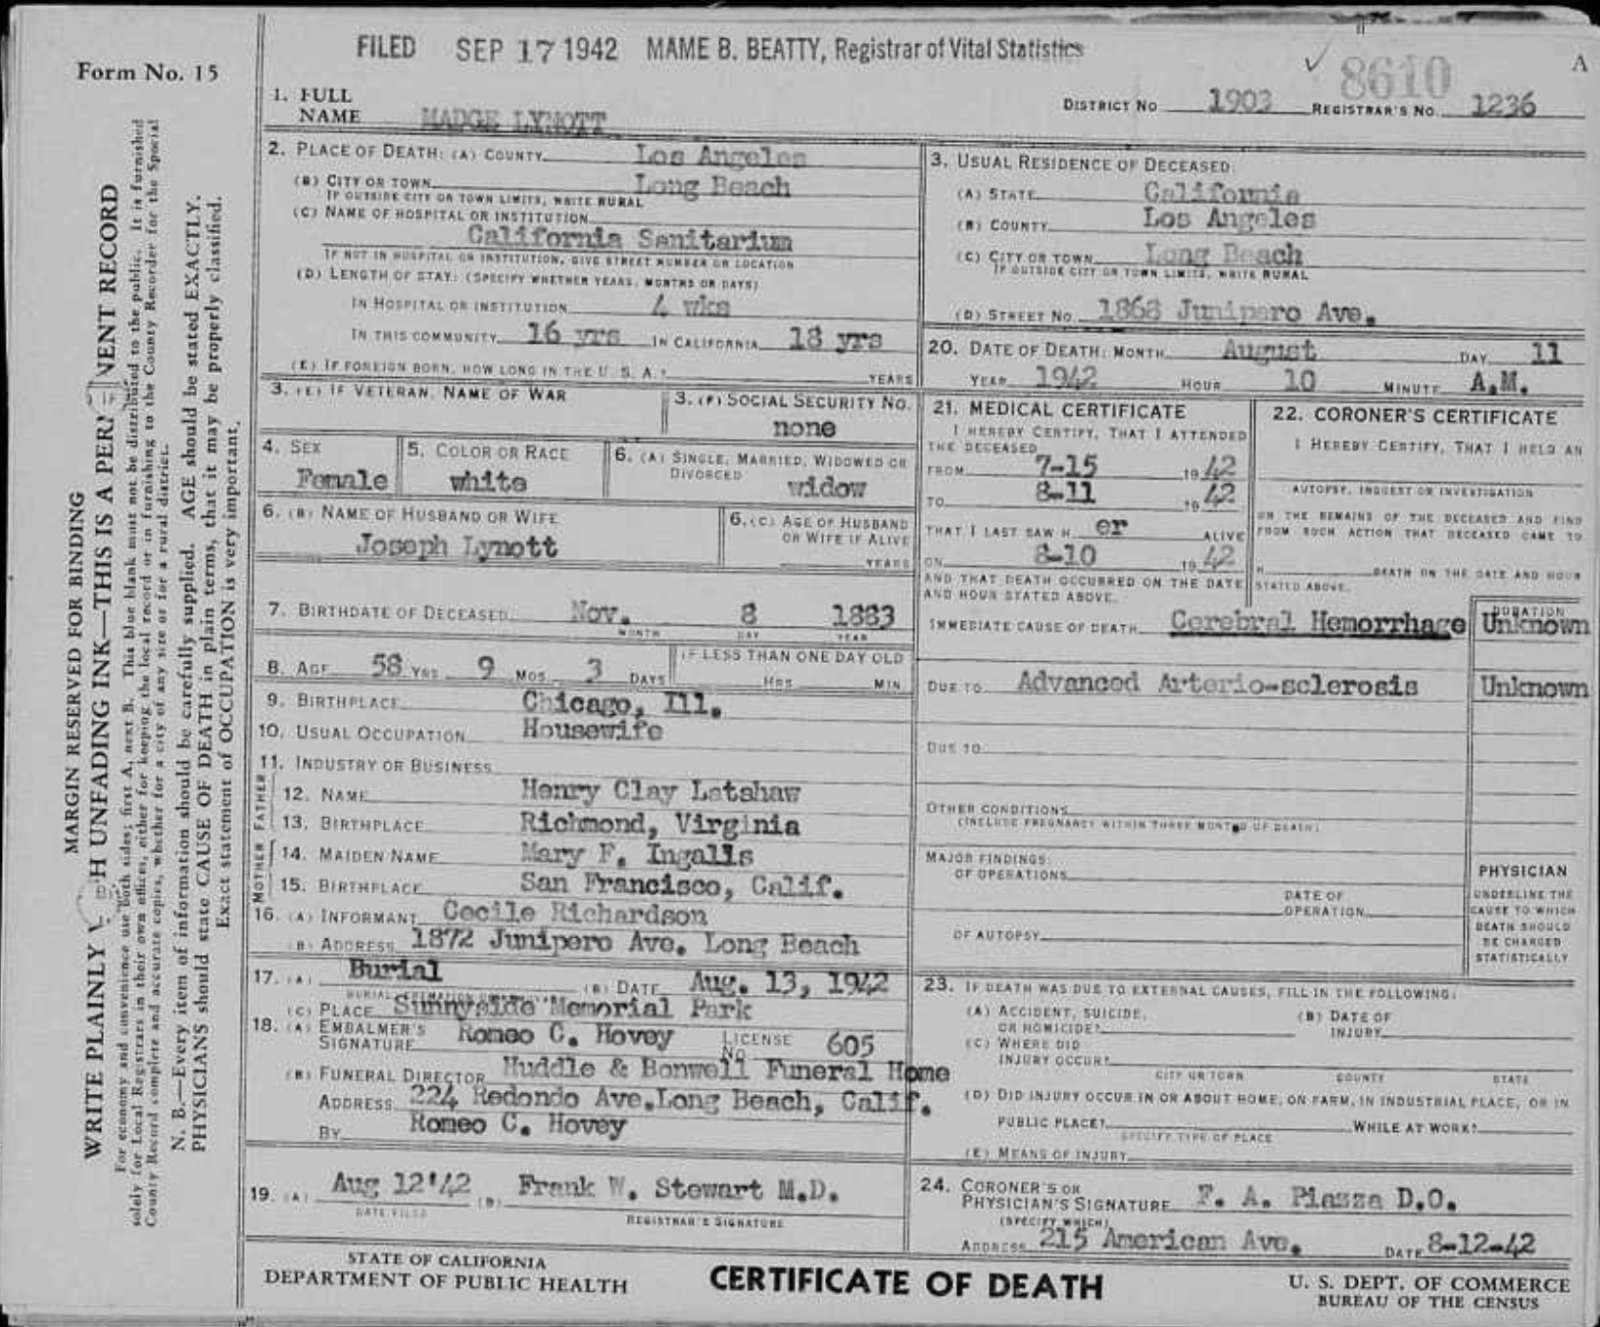 FILED SEP 17 1942 MAME B. BEATTY, Registrar of Vital Statistics
8610 A
Form No. 15
MARGIN RESERVED FOR BINDING
WRITE PLAINLY H UNFADING INK—THIS IS A PER NENT RECORD
For economy and convenience use both sides; first A, next B. This blue blank must not be distributed to the public. It is furnished
solely for Local Registrars in their own offices, either for keeping the local record or in furnishing to the County Recorder for the Special
County Record complete and accurate copies, whether for a city of any size or for a rural district.
N. B.—Every item of information should be carefully supplied. AGE should be stated EXACTLY.
PHYSICIANS should state CAUSE OF DEATH in plain terms, that it may be properly classified.
Exact statement of OCCUPATION is very important.
1. FULL NAME MADGE LYNOTT
DISTRICT NO 1903 REGISTRAR'S NO. 1236
2. PLACE OF DEATH: (A) COUNTY Los Angeles
(B) CITY OR TOWN Long Beach
IF OUTSIDE CITY OR TOWN LIMITS, WRITE RURAL
(C) NAME OF HOSPITAL OR INSTITUTION
California Sanitarium
IF NOT IN HOSPITAL OR INSTITUTION, GIVE STREET NUMBER OR LOCATION
(D) LENGTH OF STAY: (SPECIFY WHETHER YEARS, MONTHS OR DAYS)
IN HOSPITAL OR INSTITUTION 4 wks
IN THIS COMMUNITY 16 yrs IN CALIFORNIA 18 yrs
(E) IF FOREIGN BORN, HOW LONG IN THE U. S. A.? YEARS
3. USUAL RESIDENCE OF DECEASED:
(A) STATE California
(B) COUNTY Los Angeles
(C) CITY OR TOWN Long Beach
IF OUTSIDE CITY OR TOWN LIMITS, WRITE RURAL
(D) STREET NO. 1868 Junipero Ave.
20. DATE OF DEATH: MONTH August DAY 11
YEAR 1942 HOUR 10 MINUTE A.M.
3. (E) IF VETERAN, NAME OF WAR
3. (F) SOCIAL SECURITY NO.
none
4. SEX
Female
5. COLOR OR RACE
white
6. (A) SINGLE, MARRIED, WIDOWED OR DIVORCED
widow
6. (B) NAME OF HUSBAND OR WIFE
Joseph Lynott
6. (C) AGE OF HUSBAND OR WIFE IF ALIVE
YEARS
7. BIRTHDATE OF DECEASED Nov. 8 1883
MONTH DAY YEAR
8. AGE 58 YRS 9 MOS 3 DAYS
IF LESS THAN ONE DAY OLD
HRS MIN
9. BIRTHPLACE Chicago, Ill.
10. USUAL OCCUPATION Housewife
11. INDUSTRY OR BUSINESS
FATHER
12. NAME Henry Clay Latshaw
13. BIRTHPLACE Richmond, Virginia
MOTHER
14. MAIDEN NAME Mary F. Ingalls
15. BIRTHPLACE San Francisco, Calif.
16. (A) INFORMANT Cecile Richardson
(B) ADDRESS 1872 Junipero Ave. Long Beach
17. (A) Burial (B) DATE Aug. 13, 1942
(C) PLACE Sunnyside Memorial Park
18. (A) EMBALMER'S SIGNATURE Romeo C. Hovey LICENSE NO 605
(B) FUNERAL DIRECTOR Huddle & Bonwell Funeral Home
ADDRESS 224 Redondo Ave. Long Beach, Calif.
BY Romeo C. Hovey
19. (A) Aug 12'42 (B) Frank W. Stewart M.D.
DATE FILED REGISTRAR'S SIGNATURE
21. MEDICAL CERTIFICATE
I HEREBY CERTIFY, THAT I ATTENDED
THE DECEASED
FROM 7-15 19 42
TO 8-11 19 42
THAT I LAST SAW H er ALIVE
ON 8-10 19 42
AND THAT DEATH OCCURRED ON THE DATE
AND HOUR STATED ABOVE.
22. CORONER'S CERTIFICATE
I HEREBY CERTIFY, THAT I HELD AN
AUTOPSY, INQUEST OR INVESTIGATION
ON THE REMAINS OF THE DECEASED AND FIND
FROM SUCH ACTION THAT DECEASED CAME TO
H DEATH ON THE DATE AND HOUR
STATED ABOVE.
DURATION
IMMEDIATE CAUSE OF DEATH Cerebral Hemorrhage Unknown
DUE TO Advanced Arterio-sclerosis Unknown
DUE TO
OTHER CONDITIONS
(INCLUDE PREGNANCY WITHIN THREE MONTHS OF DEATH)
MAJOR FINDINGS:
OF OPERATIONS
DATE OF
OPERATION
OF AUTOPSY
PHYSICIAN
UNDERLINE THE
CAUSE TO WHICH
DEATH SHOULD
BE CHARGED
STATISTICALLY
23. IF DEATH WAS DUE TO EXTERNAL CAUSES, FILL IN THE FOLLOWING:
(A) ACCIDENT, SUICIDE, OR HOMICIDE?
(B) DATE OF INJURY
(C) WHERE DID INJURY OCCUR?
CITY OR TOWN COUNTY STATE
(D) DID INJURY OCCUR IN OR ABOUT HOME, ON FARM, IN INDUSTRIAL PLACE, OR IN
PUBLIC PLACE? WHILE AT WORK?
SPECIFY TYPE OF PLACE
(E) MEANS OF INJURY
24. CORONER'S OR
PHYSICIAN'S SIGNATURE F. A. Piazza D.O.
(SPECIFY WHICH)
ADDRESS 215 American Ave. DATE 8-12-42
STATE OF CALIFORNIA
DEPARTMENT OF PUBLIC HEALTH
CERTIFICATE OF DEATH
U. S. DEPT. OF COMMERCE
BUREAU OF THE CENSUS